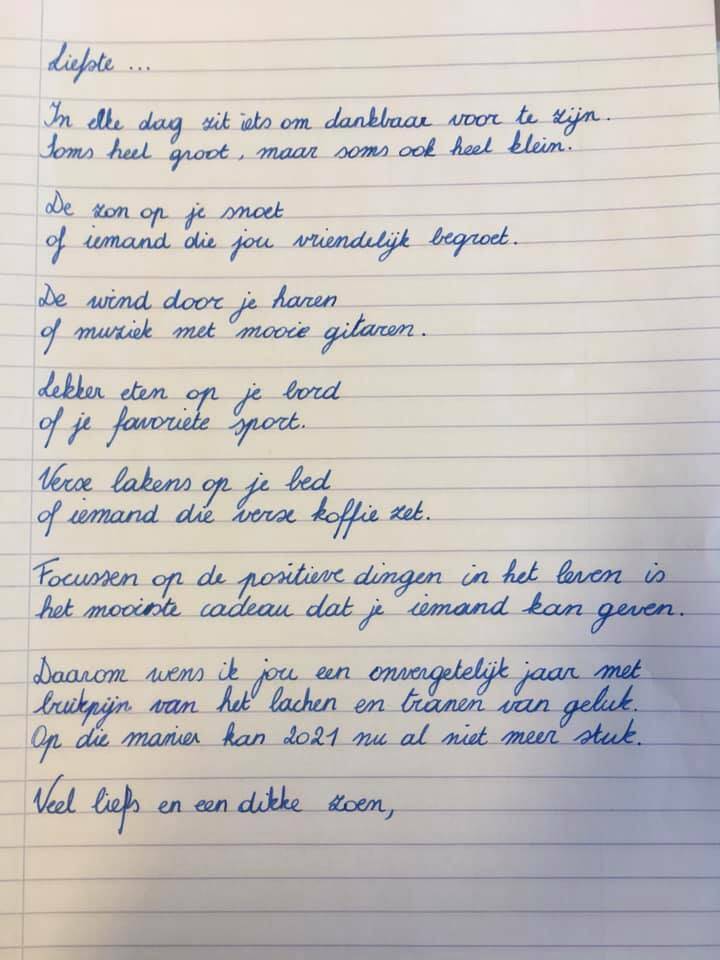 Liefste ...
In elke dag zit iets om dankbaar voor te zijn.
Soms heel groot, maar soms ook heel klein.
De zon op je snoet
of iemand die jou vriendelijk begroet.
De wind door je haren
of muziek met mooie gitaren.
Lekker eten op je bord
of je favoriete sport.
Verse lakens op je bed
of iemand die verse koffie zet.
Focussen op de positieve dingen in het leven is
het mooiste cadeau dat je iemand kan geven.
Daarom wens ik jou een onvergetelijk jaar met
buikpijn van het lachen en tranen van geluk.
Op die manier kan 2021 nu al niet meer stuk.
Veel liefs en een dikke zoen,